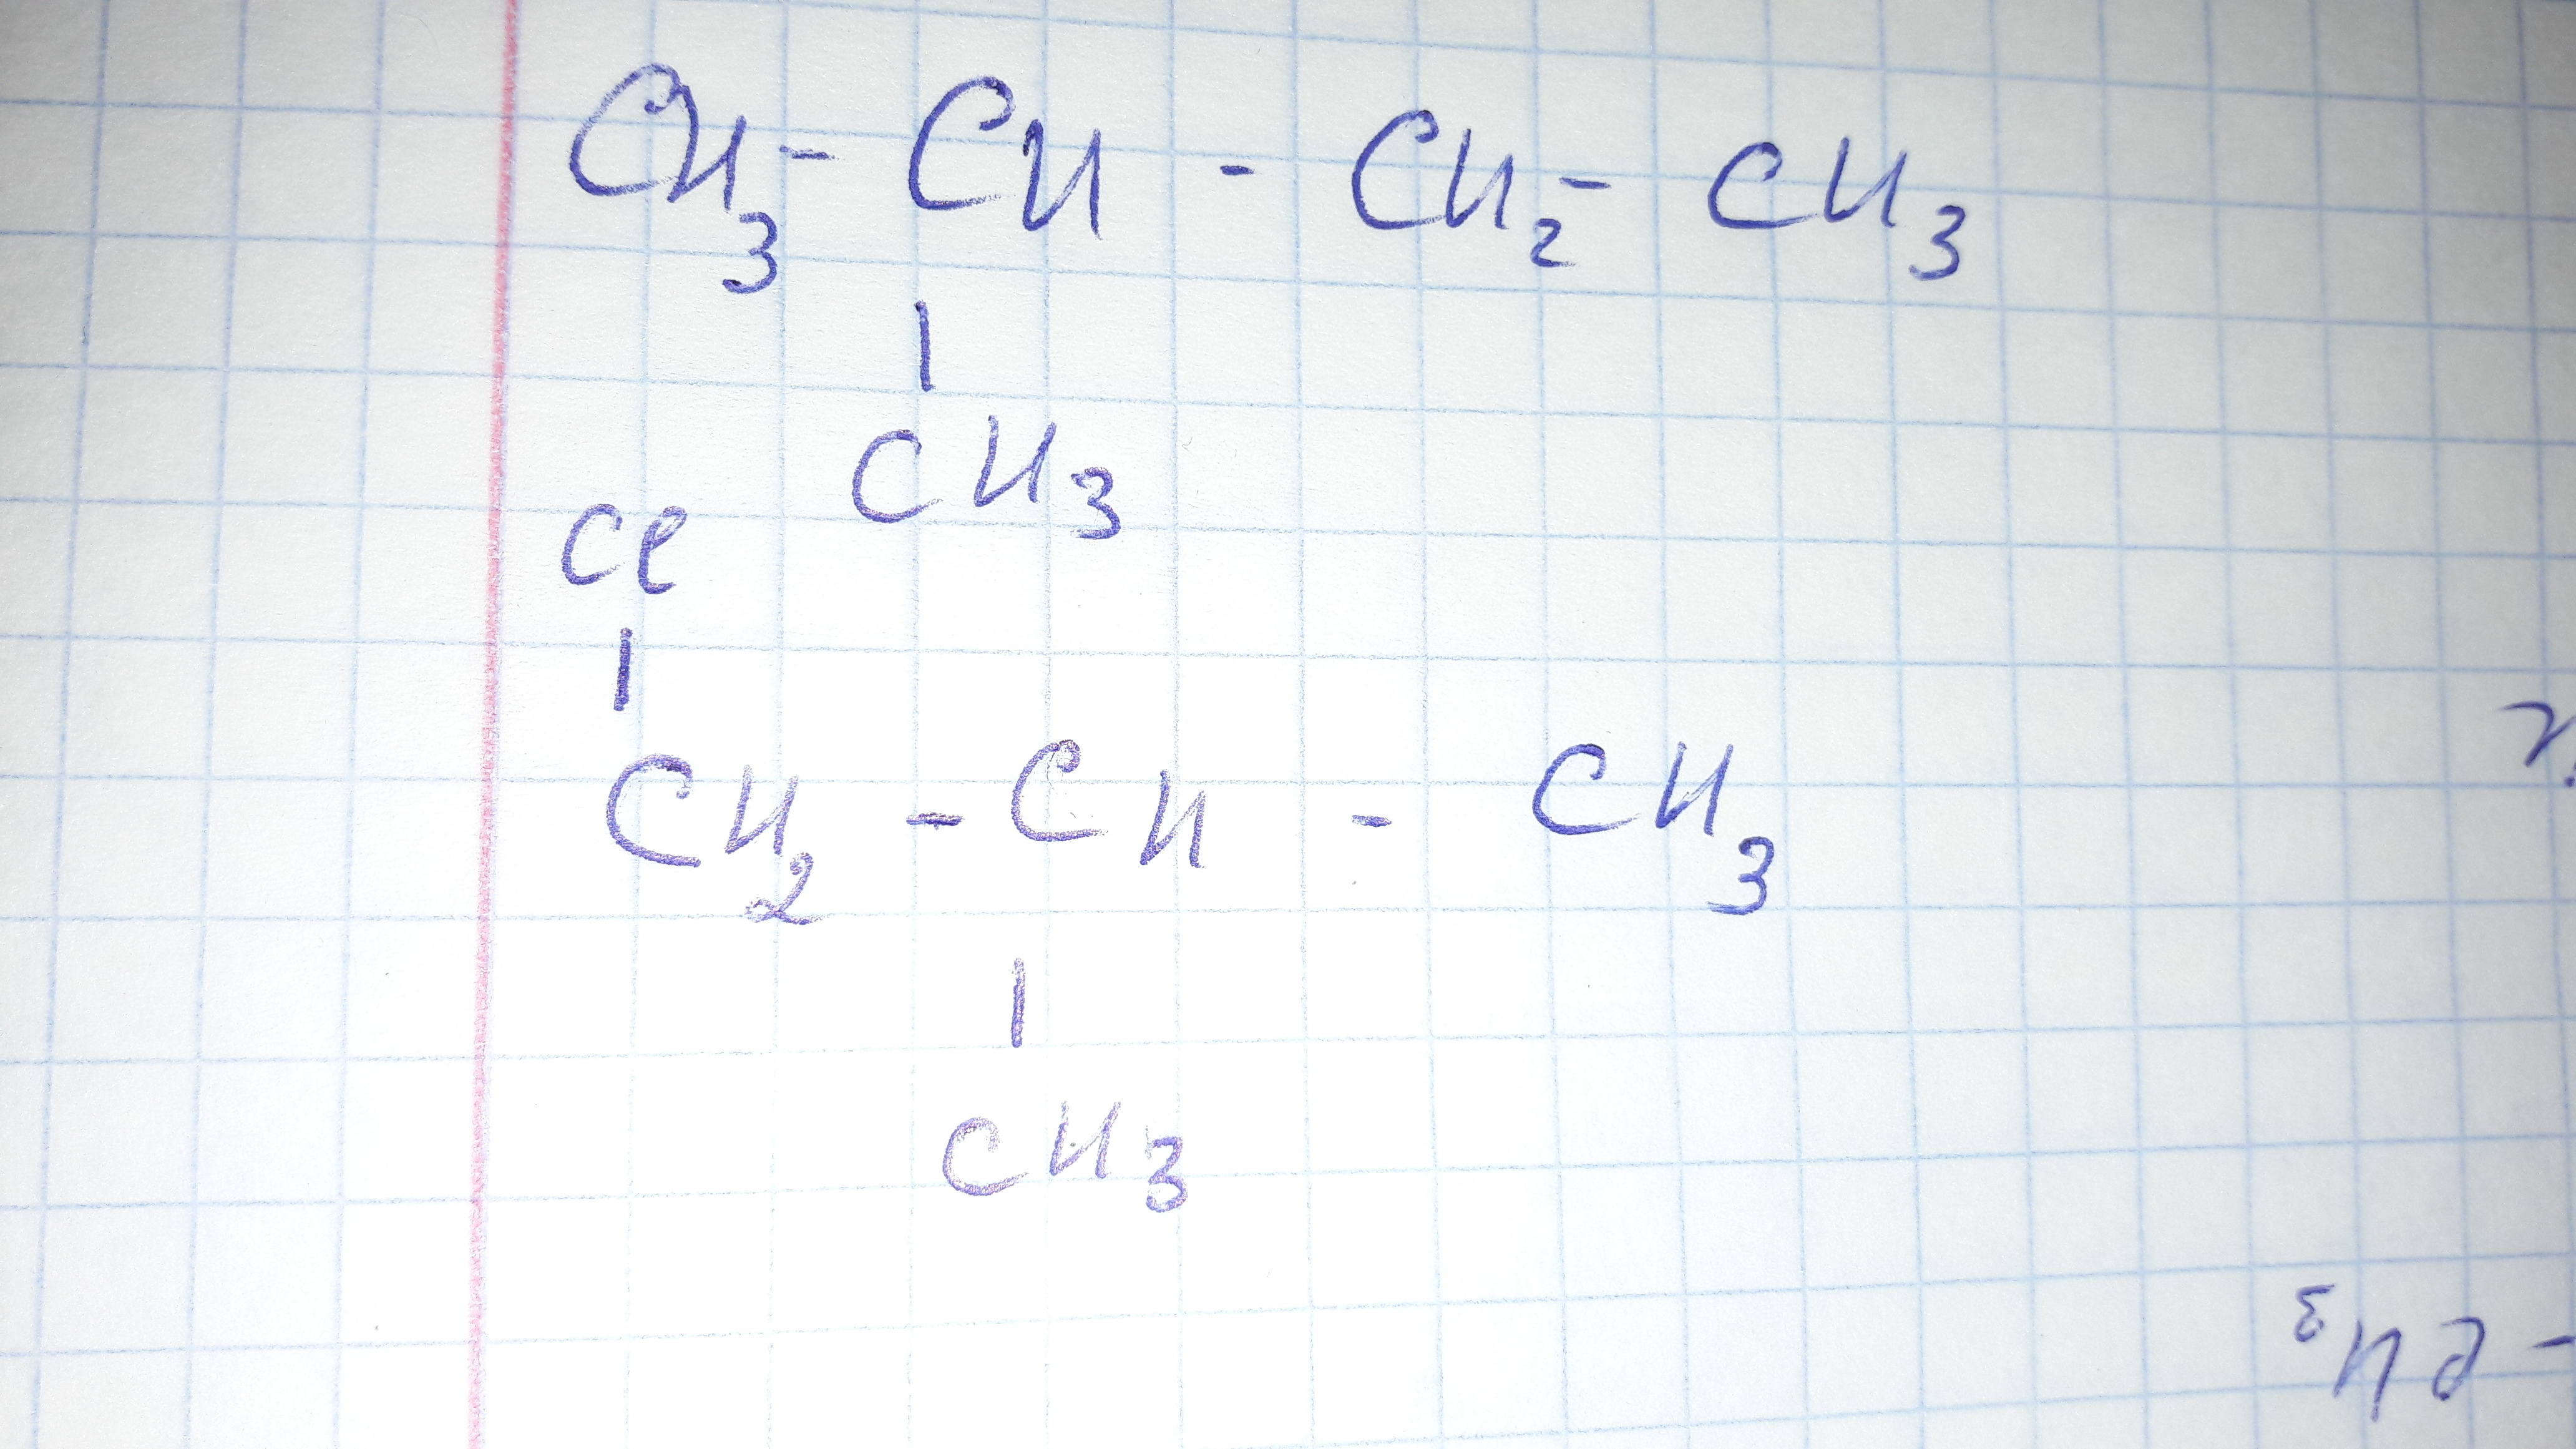 CH3 - CH - CH2 - CH3
|
CH3
Cl
|
CH2 - CH - CH3
|
CH3
- CH3